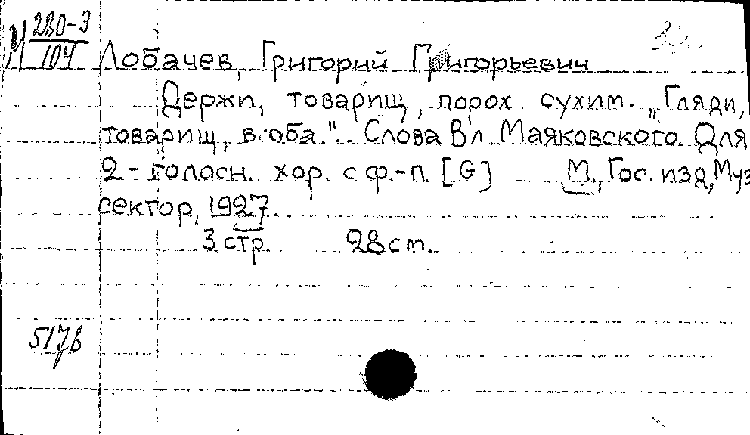 М 280-3
104
Лобачев, Григорий Григорьевич
Держи, товарищ, порох сухим. „Гляди,
товарищ, в оба." Слова Вл. Маяковского. Для
2-голосн. хор. с ф.-п. [G] М., Гос. изд, Муз
сектор, 1927.
3 стр. 28 см.
5178